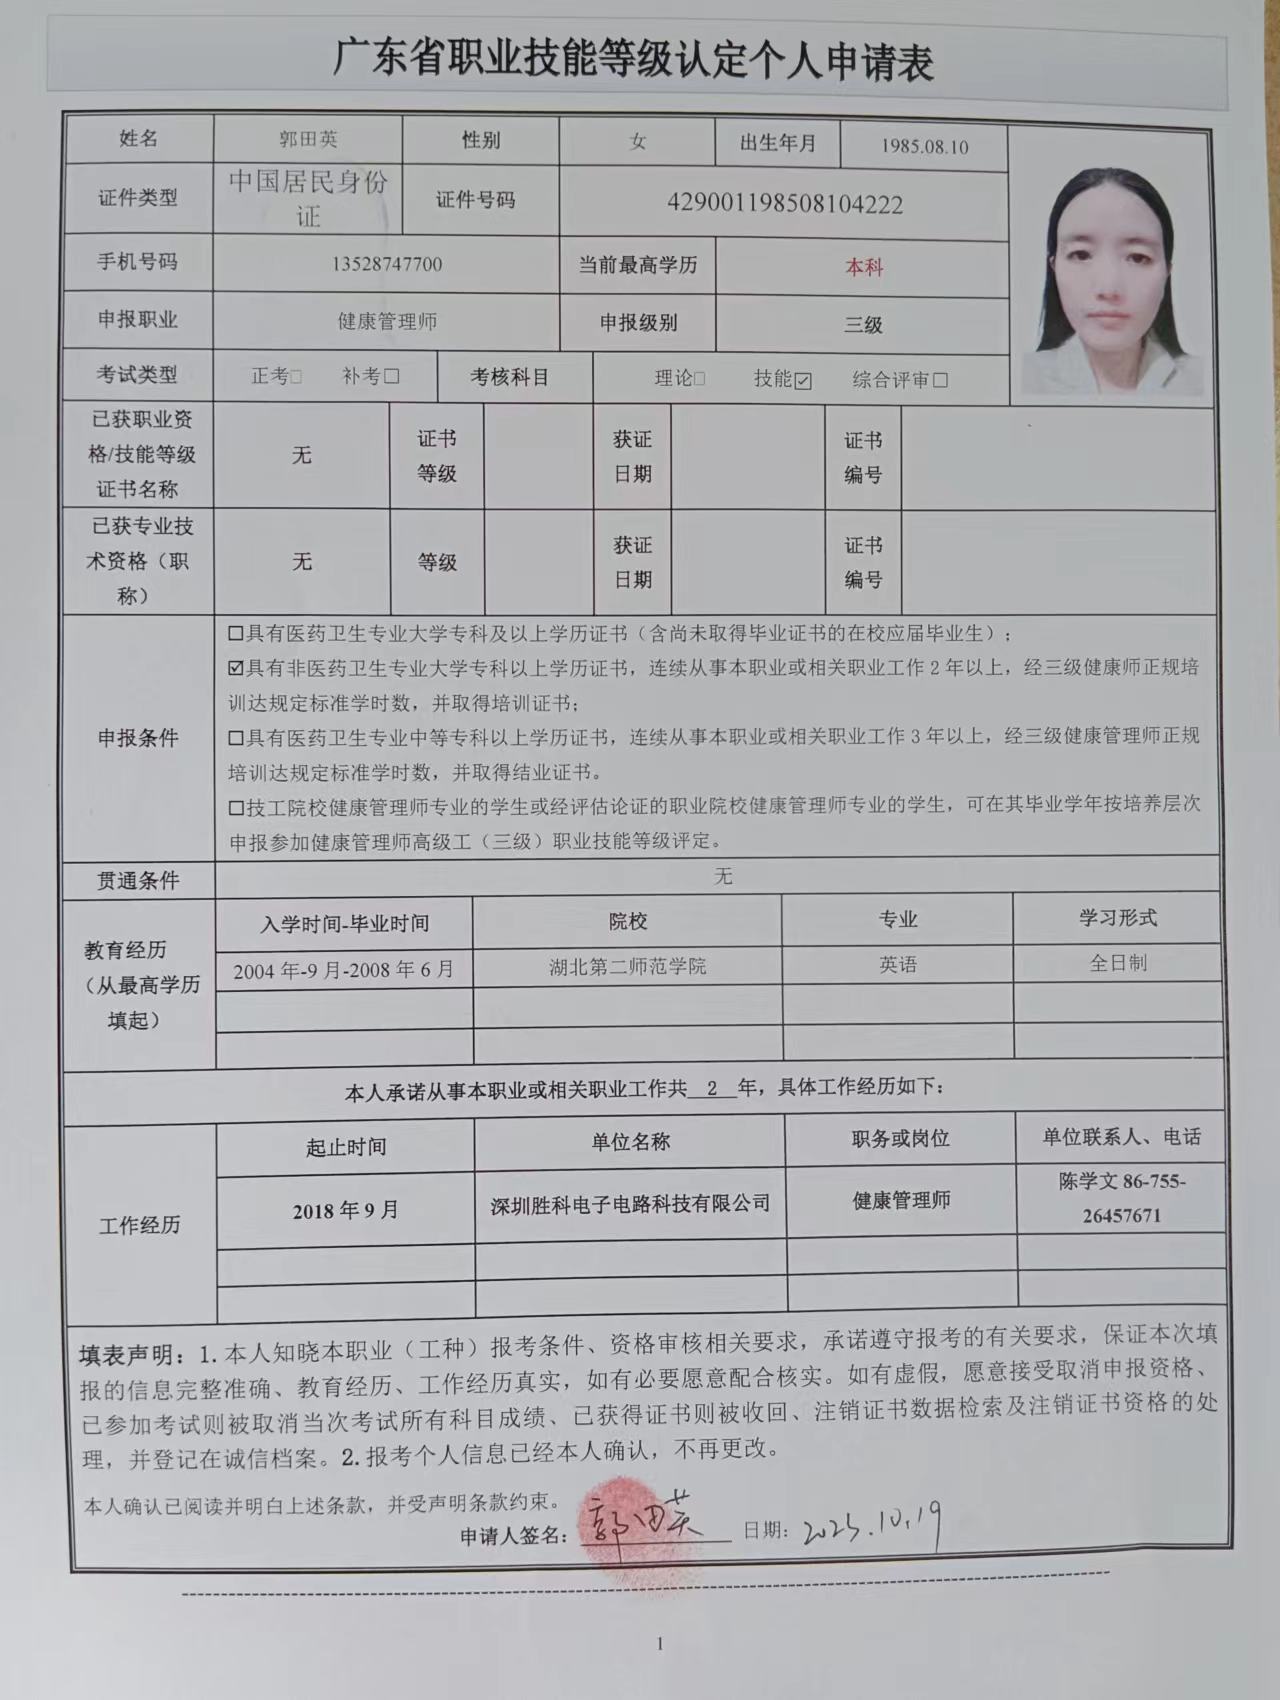 广东省职业技能等级认定个人申请表
姓名 郭田英 性别 女 出生年月 1985.08.10
证件类型 中国居民身份证 证件号码 429001198508104222
手机号码 13528747700 当前最高学历 本科
申报职业 健康管理师 申报级别 三级
考试类型 正考□ 补考□ 考核科目 理论□ 技能☑ 综合评审□
已获职业资格/技能等级证书名称 无 证书等级 获证日期 证书编号
已获专业技术资格（职称） 无 等级 获证日期 证书编号
申报条件
□具有医药卫生专业大学专科及以上学历证书（含尚未取得毕业证书的在校应届毕业生）；
☑具有非医药卫生专业大学专科以上学历证书，连续从事本职业或相关职业工作 2 年以上，经三级健康师正规培
训达规定标准学时数，并取得培训证书；
□具有医药卫生专业中等专科以上学历证书，连续从事本职业或相关职业工作 3 年以上，经三级健康管理师正规
培训达规定标准学时数，并取得结业证书。
□技工院校健康管理师专业的学生或经评估论证的职业院校健康管理师专业的学生，可在其毕业学年按培养层次
申报参加健康管理师高级工（三级）职业技能等级评定。
贯通条件 无
教育经历（从最高学历填起）
入学时间-毕业时间 院校 专业 学习形式
2004 年-9 月-2008 年 6 月 湖北第二师范学院 英语 全日制
本人承诺从事本职业或相关职业工作共 2 年，具体工作经历如下：
工作经历
起止时间 单位名称 职务或岗位 单位联系人、电话
2018 年 9 月 深圳胜科电子电路科技有限公司 健康管理师 陈学文 86-755-26457671
填表声明：1.本人知晓本职业（工种）报考条件、资格审核相关要求，承诺遵守报考的有关要求，保证本次填
报的信息完整准确、教育经历、工作经历真实，如有必要愿意配合核实。如有虚假，愿意接受取消申报资格、
已参加考试则被取消当次考试所有科目成绩、已获得证书则被收回、注销证书数据检索及注销证书资格的处
理，并登记在诚信档案。2.报考个人信息已经本人确认，不再更改。
本人确认已阅读并明白上述条款，并受声明条款约束。
申请人签名：郭田英 日期：2025.10.19
1